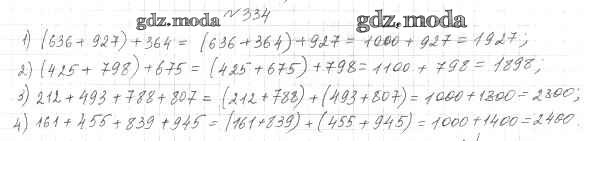 gdz.moda №334 gdz.moda
1) (636 + 927) + 364 = (636 + 364) + 927 = 1000 + 927 = 1927;
2) (425 + 798) + 675 = (425 + 675) + 798 = 1100 + 798 = 1898;
3) 212 + 493 + 788 + 807 = (212 + 788) + (493 + 807) = 1000 + 1300 = 2300;
4) 161 + 455 + 839 + 945 = (161 + 839) + (455 + 945) = 1000 + 1400 = 2400.